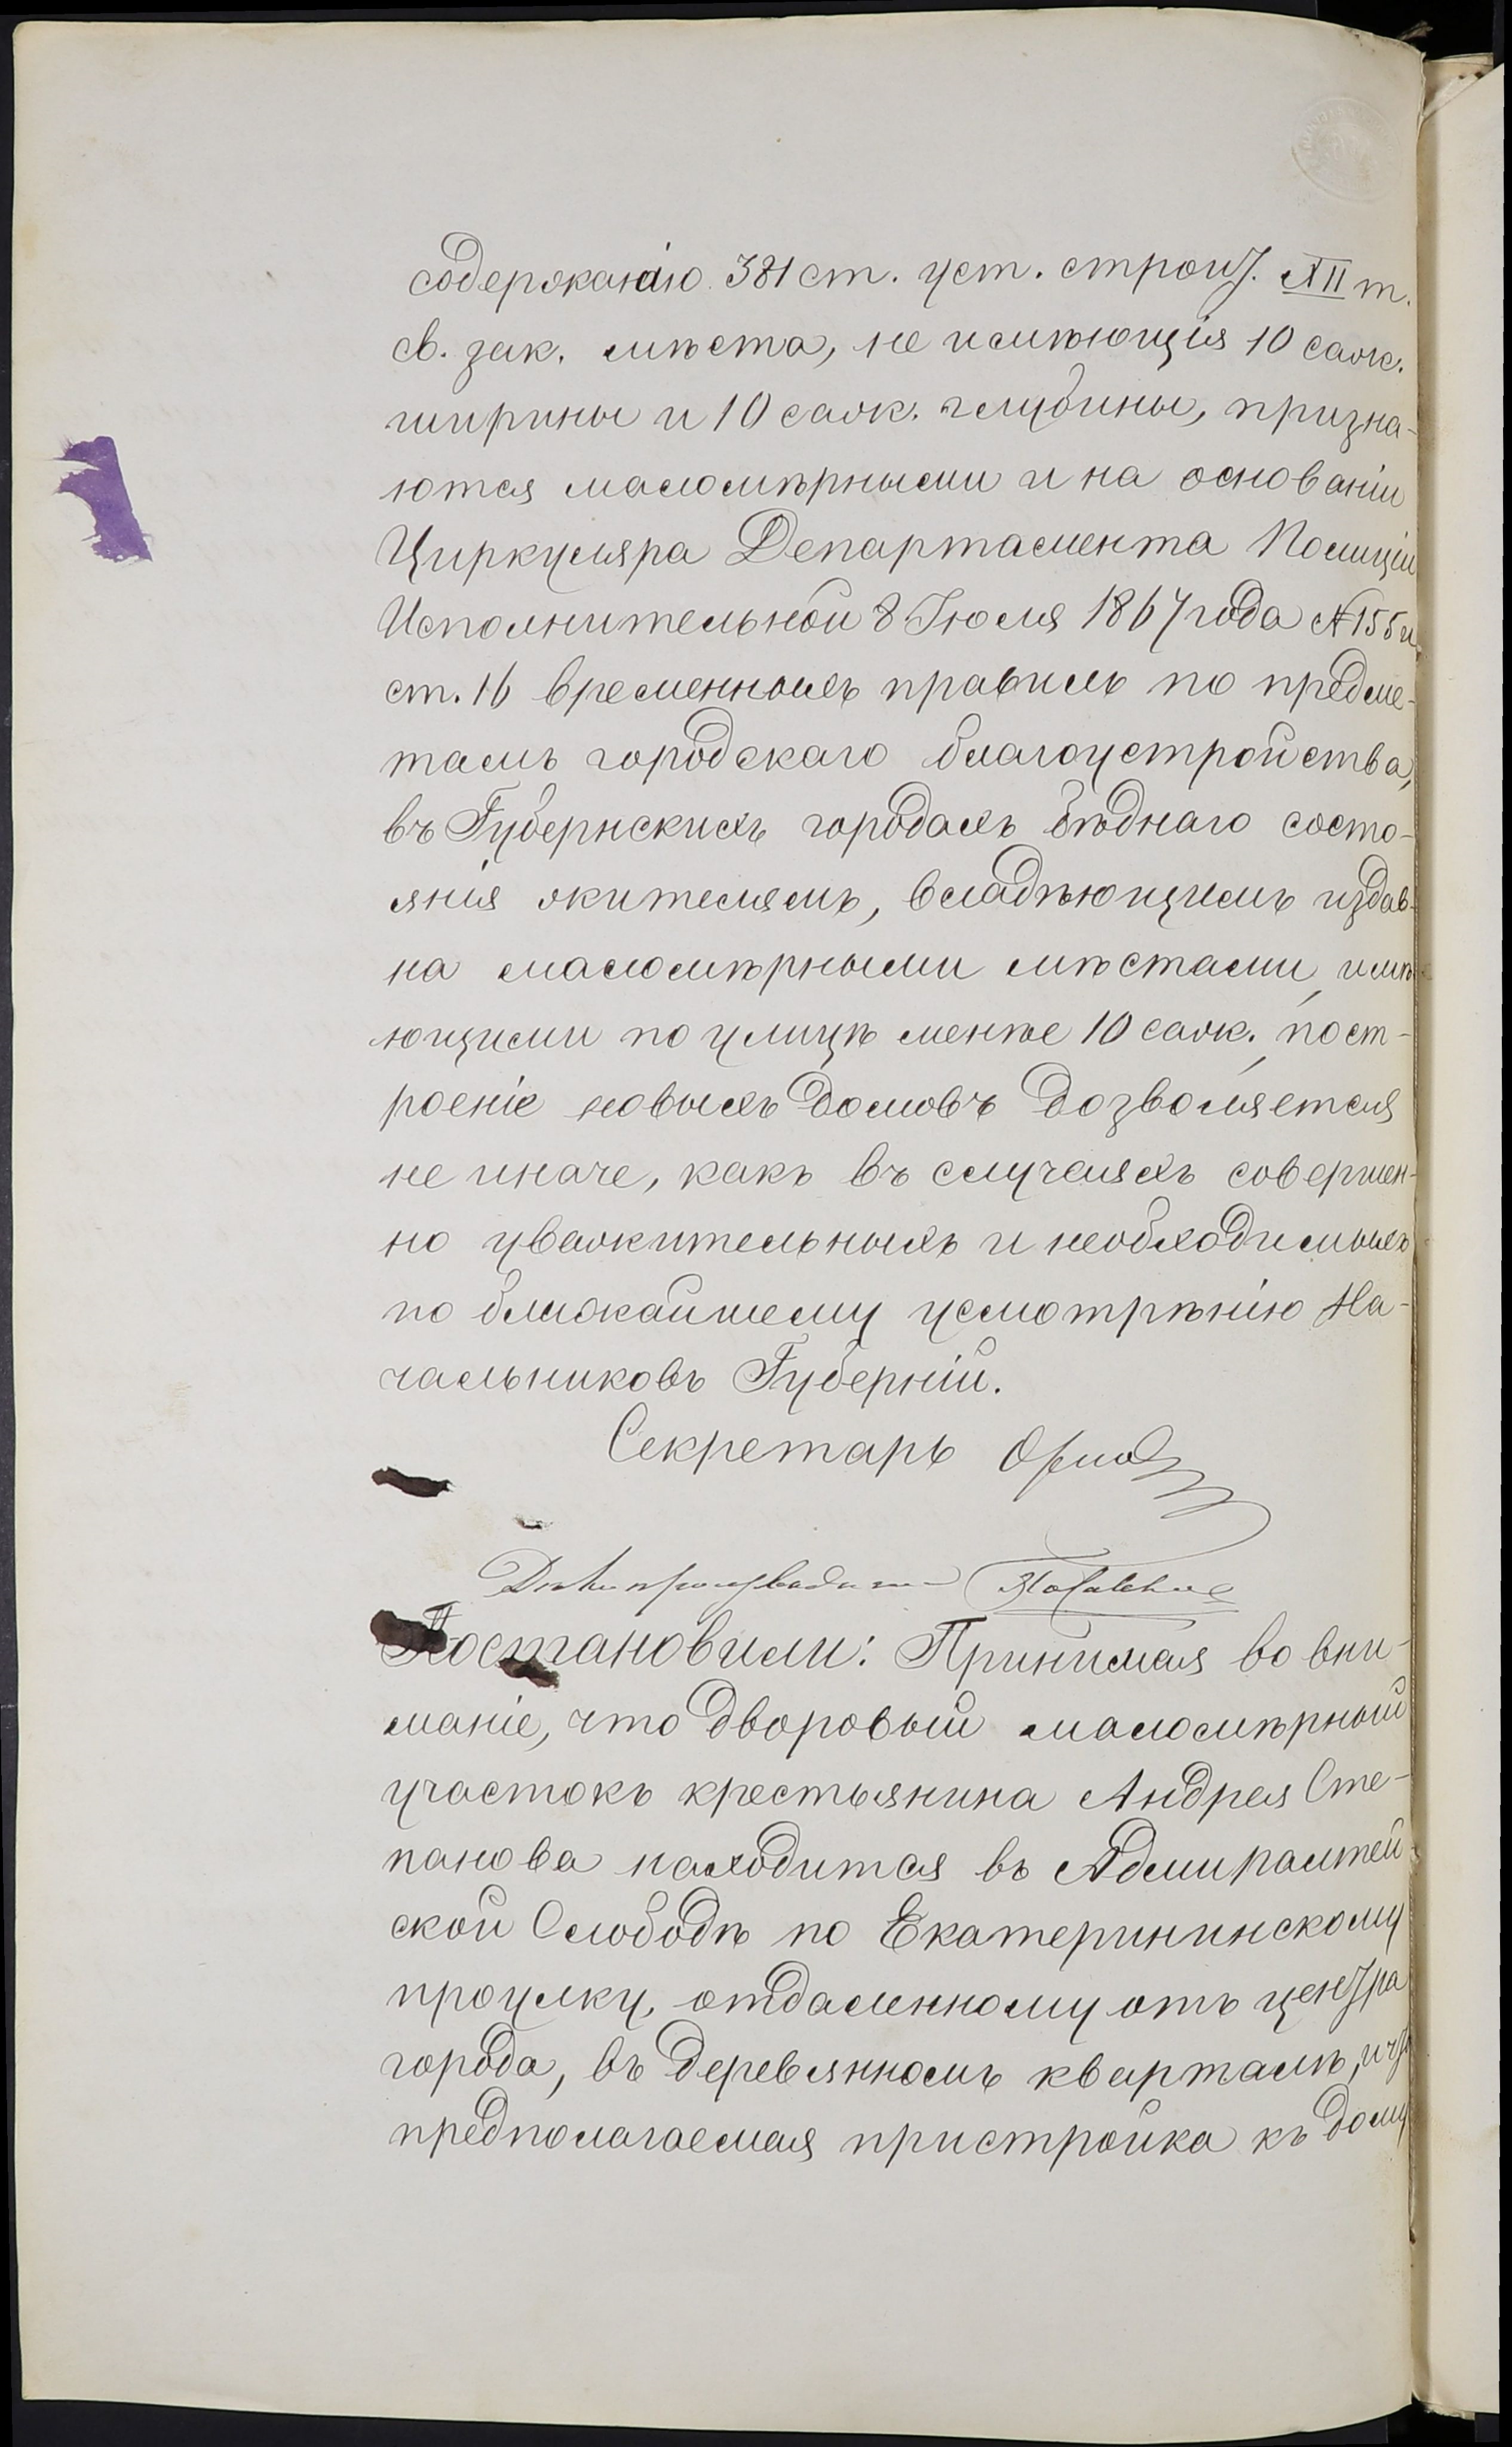 содержанію 381 ст. уст. строит. XII т.
св. зак. мѣста, не имѣющія 10 саж.
ширины и 10 саж. глубины, призна-
ются маломѣрными и на основаніи
Циркуляра Департамента Полиціи
Исполнительной 8 Іюля 1867 года №155 и
ст. 16 временныхъ правилъ по предме-
тамъ городскаго благоустройства,
въ Губернскихъ городахъ бѣднаго состо-
янія жителямъ, владѣющимъ издав-
на маломѣрными мѣстами, имѣ
ющими по улицѣ менѣе 10 саж., пост-
роеніе новыхъ домовъ дозволяется
не иначе, какъ въ случаяхъ совершен-
но уважительныхъ и необходимыхъ
по ближайшему усмотрѣнію На-
чальниковъ Губерній.
Секретарь Орлов
Дѣлопроизводитель
Постановили: Принимая во вни-
маніе, что дворовый маломѣрный
участокъ крестьянина Андрея Сте-
панова находится въ Адмиралтей-
ской Слободѣ по Екатерининскому
проулку, отдаленному отъ центра
города, въ деревянномъ кварталѣ, и что
предполагаемая пристройка къ дому